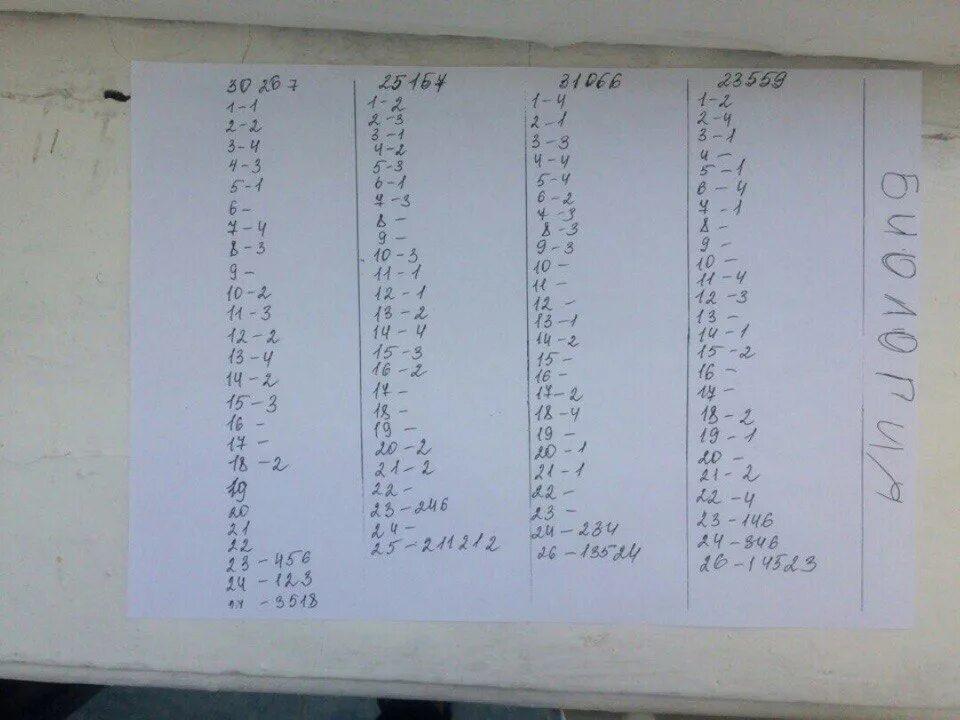 30267
1-1
2-2
3-4
4-3
5-1
6-
7-4
8-3
9-
10-2
11-3
12-2
13-4
14-2
15-3
16-
17-
18-2
19
20
21
22
23-456
24-123
-3518
25157
1-2
2-3
3-1
4-2
5-3
6-1
7-3
8-
9-
10-3
11-1
12-1
13-2
14-4
15-3
16-2
17-
18-
19-
20-2
21-2
22-
23-246
24-
25-211212
31066
1-4
2-1
3-3
4-4
5-4
6-2
7-3
8-3
9-3
10-
11-
12-
13-1
14-2
15-
16-
17-2
18-4
19-
20-1
21-1
22-
23-
24-234
26-13524
23559
1-2
2-4
3-1
4-
5-1
6-4
7-1
8-
9-
10-
11-4
12-3
13-
14-1
15-2
16-
17-
18-2
19-1
20-
21-2
22-4
23-146
24-346
26-14523
БИОЛОГИЯ